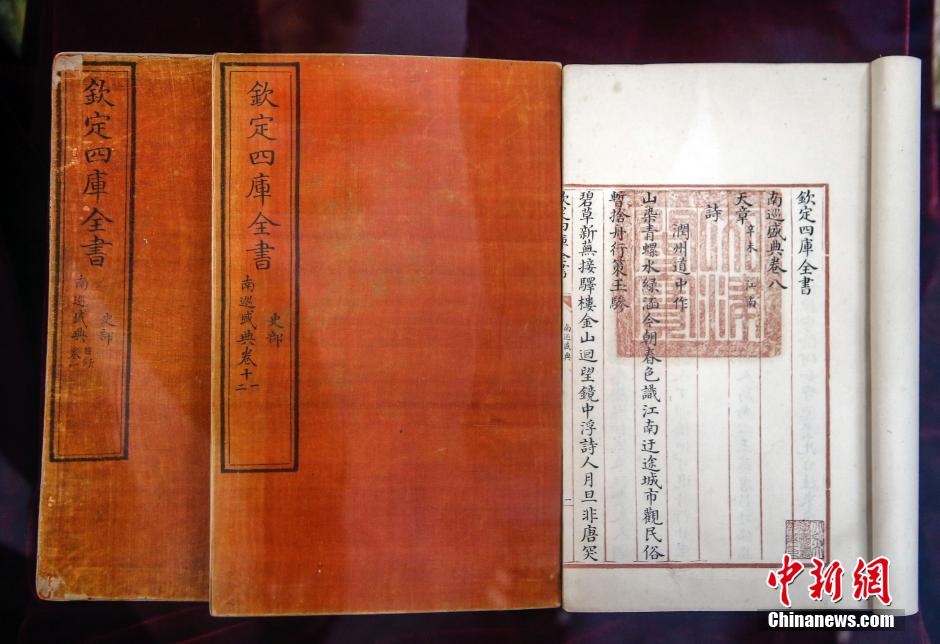 欽定四庫全書
史部
南巡盛典目錄卷一
欽定四庫全書
史部
南巡盛典卷十一二
欽定四庫全書
南巡盛典卷八
天章辛未江南
詩
潤州道中作
山染青螺水綠涵今朝春色識江南迂途城市觀民俗
暫捨舟行策玉驂
碧草新蕪接驛樓金山迴望鏡中浮詩人月旦非唐突
欽定四庫全書
南巡盛典
一
中新網
Chinanews.com